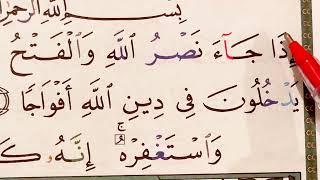 بِسْمِ ٱللَّهِ ٱلرَّحْمَٰنِ
إِذَا جَآءَ نَصْرُ ٱللَّهِ وَٱلْفَتْحُ
يَدْخُلُونَ فِى دِينِ ٱللَّهِ أَفْوَاجًا
وَٱسْتَغْفِرْهُ ۚ إِنَّهُۥ